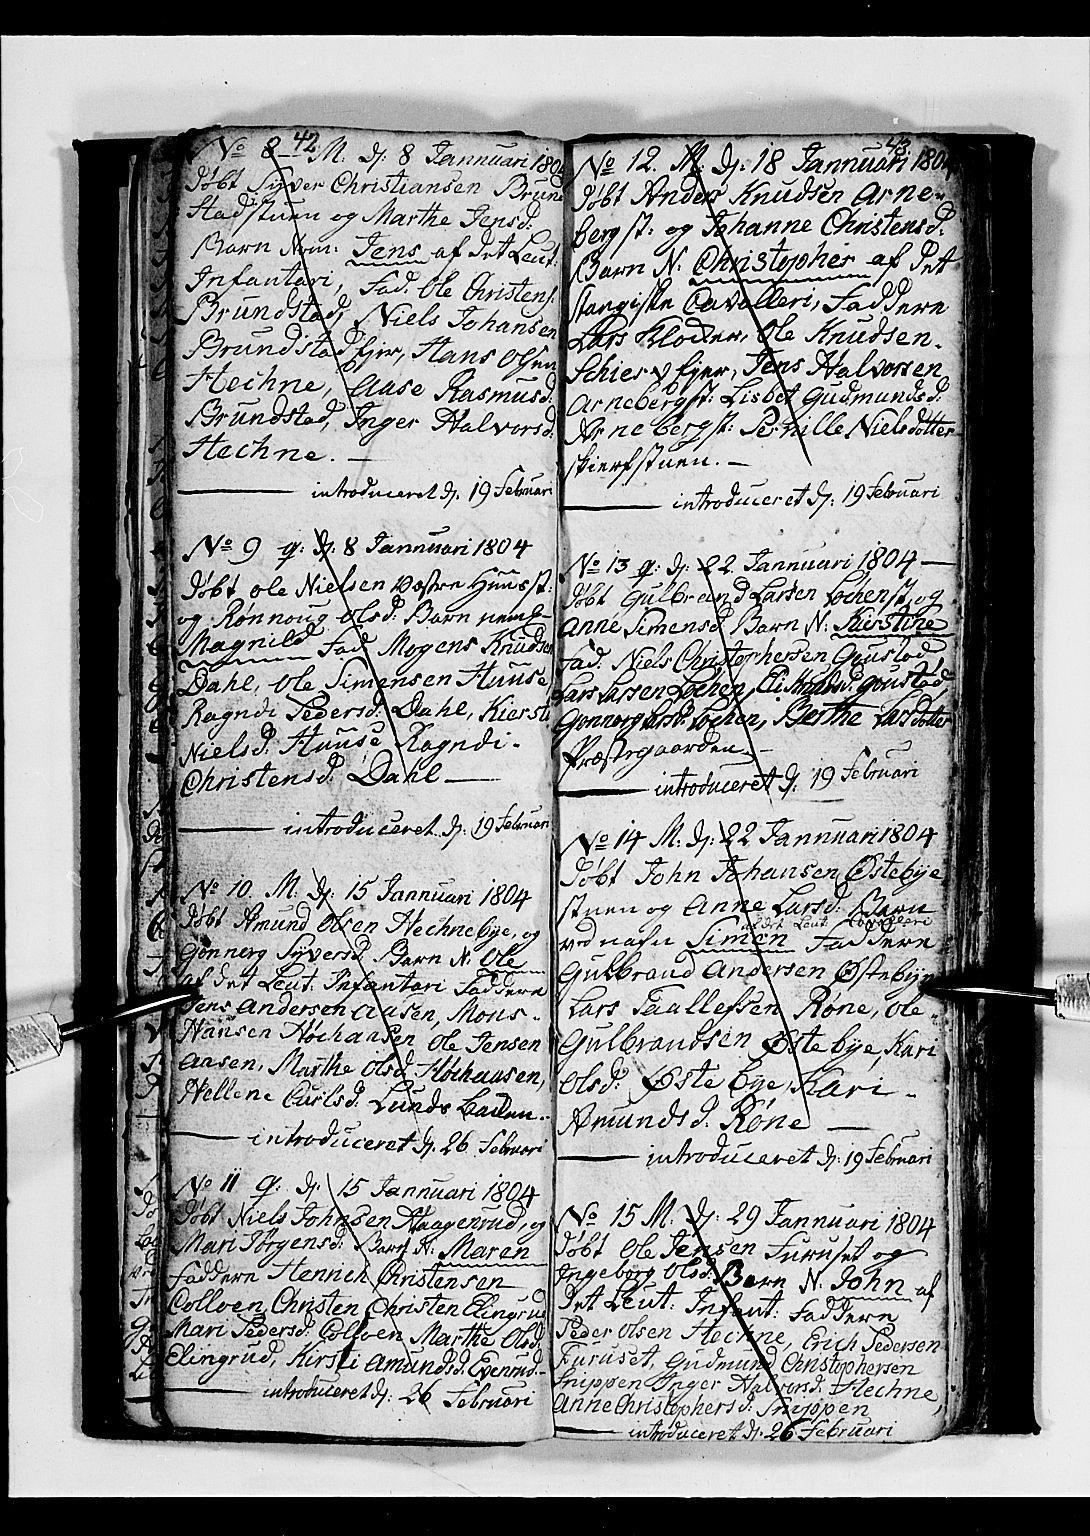 42
No 8 M. d: 8 Jannuari 1804
døbt Syver Christiansen Brund
stadstuen og Marthe Jensd:
Barn Nom: Jens af det Leut:
Infantari, Fad: Ole Christens:
Brundstad, Niels Johansen
Brundstad ejer, Hans Olsen
Hechne, Aase Rasmusd:
Brundstad, Inger Halvorsd:
Hechne. —
— introduceret d: 19 Februari
No 9 q: d: 8 Jannuari 1804
døbt Ole Nielsen Væstre Huusst:
og Rønnoug Olsd: Barn
Magnild Fad Mogens Knudsen
Dahl, Ole Simensen Huuse
Ragndi Pedersd: Dahl, Kiersti
Nielsd: Huuse, Ragndi
Christensd: Dahl —
— introduceret d: 19 Februari
No 10. M. d: 15 Jannuari 1804
døbt Amund Olsen Hechnebye, og
Gønnerg Syversd: Barn N: Ole
af det Leut: Infantari Faddere
Jens Andersen Aasen, Mons
Hansen Høihausen Ole Jensen
Aasen, Marthe Olsd: Høihausen,
Hellene Carlsd: Lunds
— introduceret d: 26 Februari
No 11 q: d: 15 Jannuari 1804
døbt Niels Johnsen Haagenrud, og
Mari Jørgensd: Barn N: Maren
Faddere Henrich Christensen
Colloen, Christen Christen Elingrud
Mari Pedersd: Colloen Marthe Olsd:
Elingrud, Kirsti Amundsd: Evenrud
— introduceret d: 26 Februari
43.
No 12. M. d: 18 Jannuari 1804
døbt Anders Knudsen Arne-
bergst: og Johanne Christensd:
Barn N: Christopher af det
Stangiske Cavalleri, Faddere
Lars Klocker, Ole Knudsen
Schierv ejer, Jens Halvorsen
Arnebergst: Lisbet Gudmundsd:
Arnebergst: Pernille Nielsdotter
skierfstuen. —
— introduceret d: 19 Februari
No 13 q: d: 22 Jannuari 1804 —
døbt Gulbrand Larsen Løchenst: og
Anne Simensd: Barn N: Kierstine
Fad: Niels Christophersen Goustad
Lars Larsen Løchen, Eli Goustad
Gonnerg Larsd: Løchen, Berthe Larsdotter
Præstegaarden. —
— introduceret d: 19 Februari
No 14 M. d: 22 Jannuari 1804
døbt John Johansen Østebye
stuen og Anne Larsd: Barn
af det Leut Cavalleri
ved nafn Simen Faddere
Gulbrand Andersen Østebye
Lars Taallefsen Røne, Ole
Gulbrandsen Østebye, Kari
Olsd: Østebye, Kari
Amundsd: Røne —
— introduceret d: 19 Februari
No 15 M. d: 29 Jannuari 1804
døbt Ole Jensen Furuset og
Ingeborg Olsd: Barn N: John af
det Leut: Infant: Faddere
Peder Olsen Hechne, Erich Pedersen
Furuset, Gudmund Christophersen
Snippen Inger Halvorsd: Hechne,
Anne Christophersd: Snippen
— introduceret d: 26 Februari